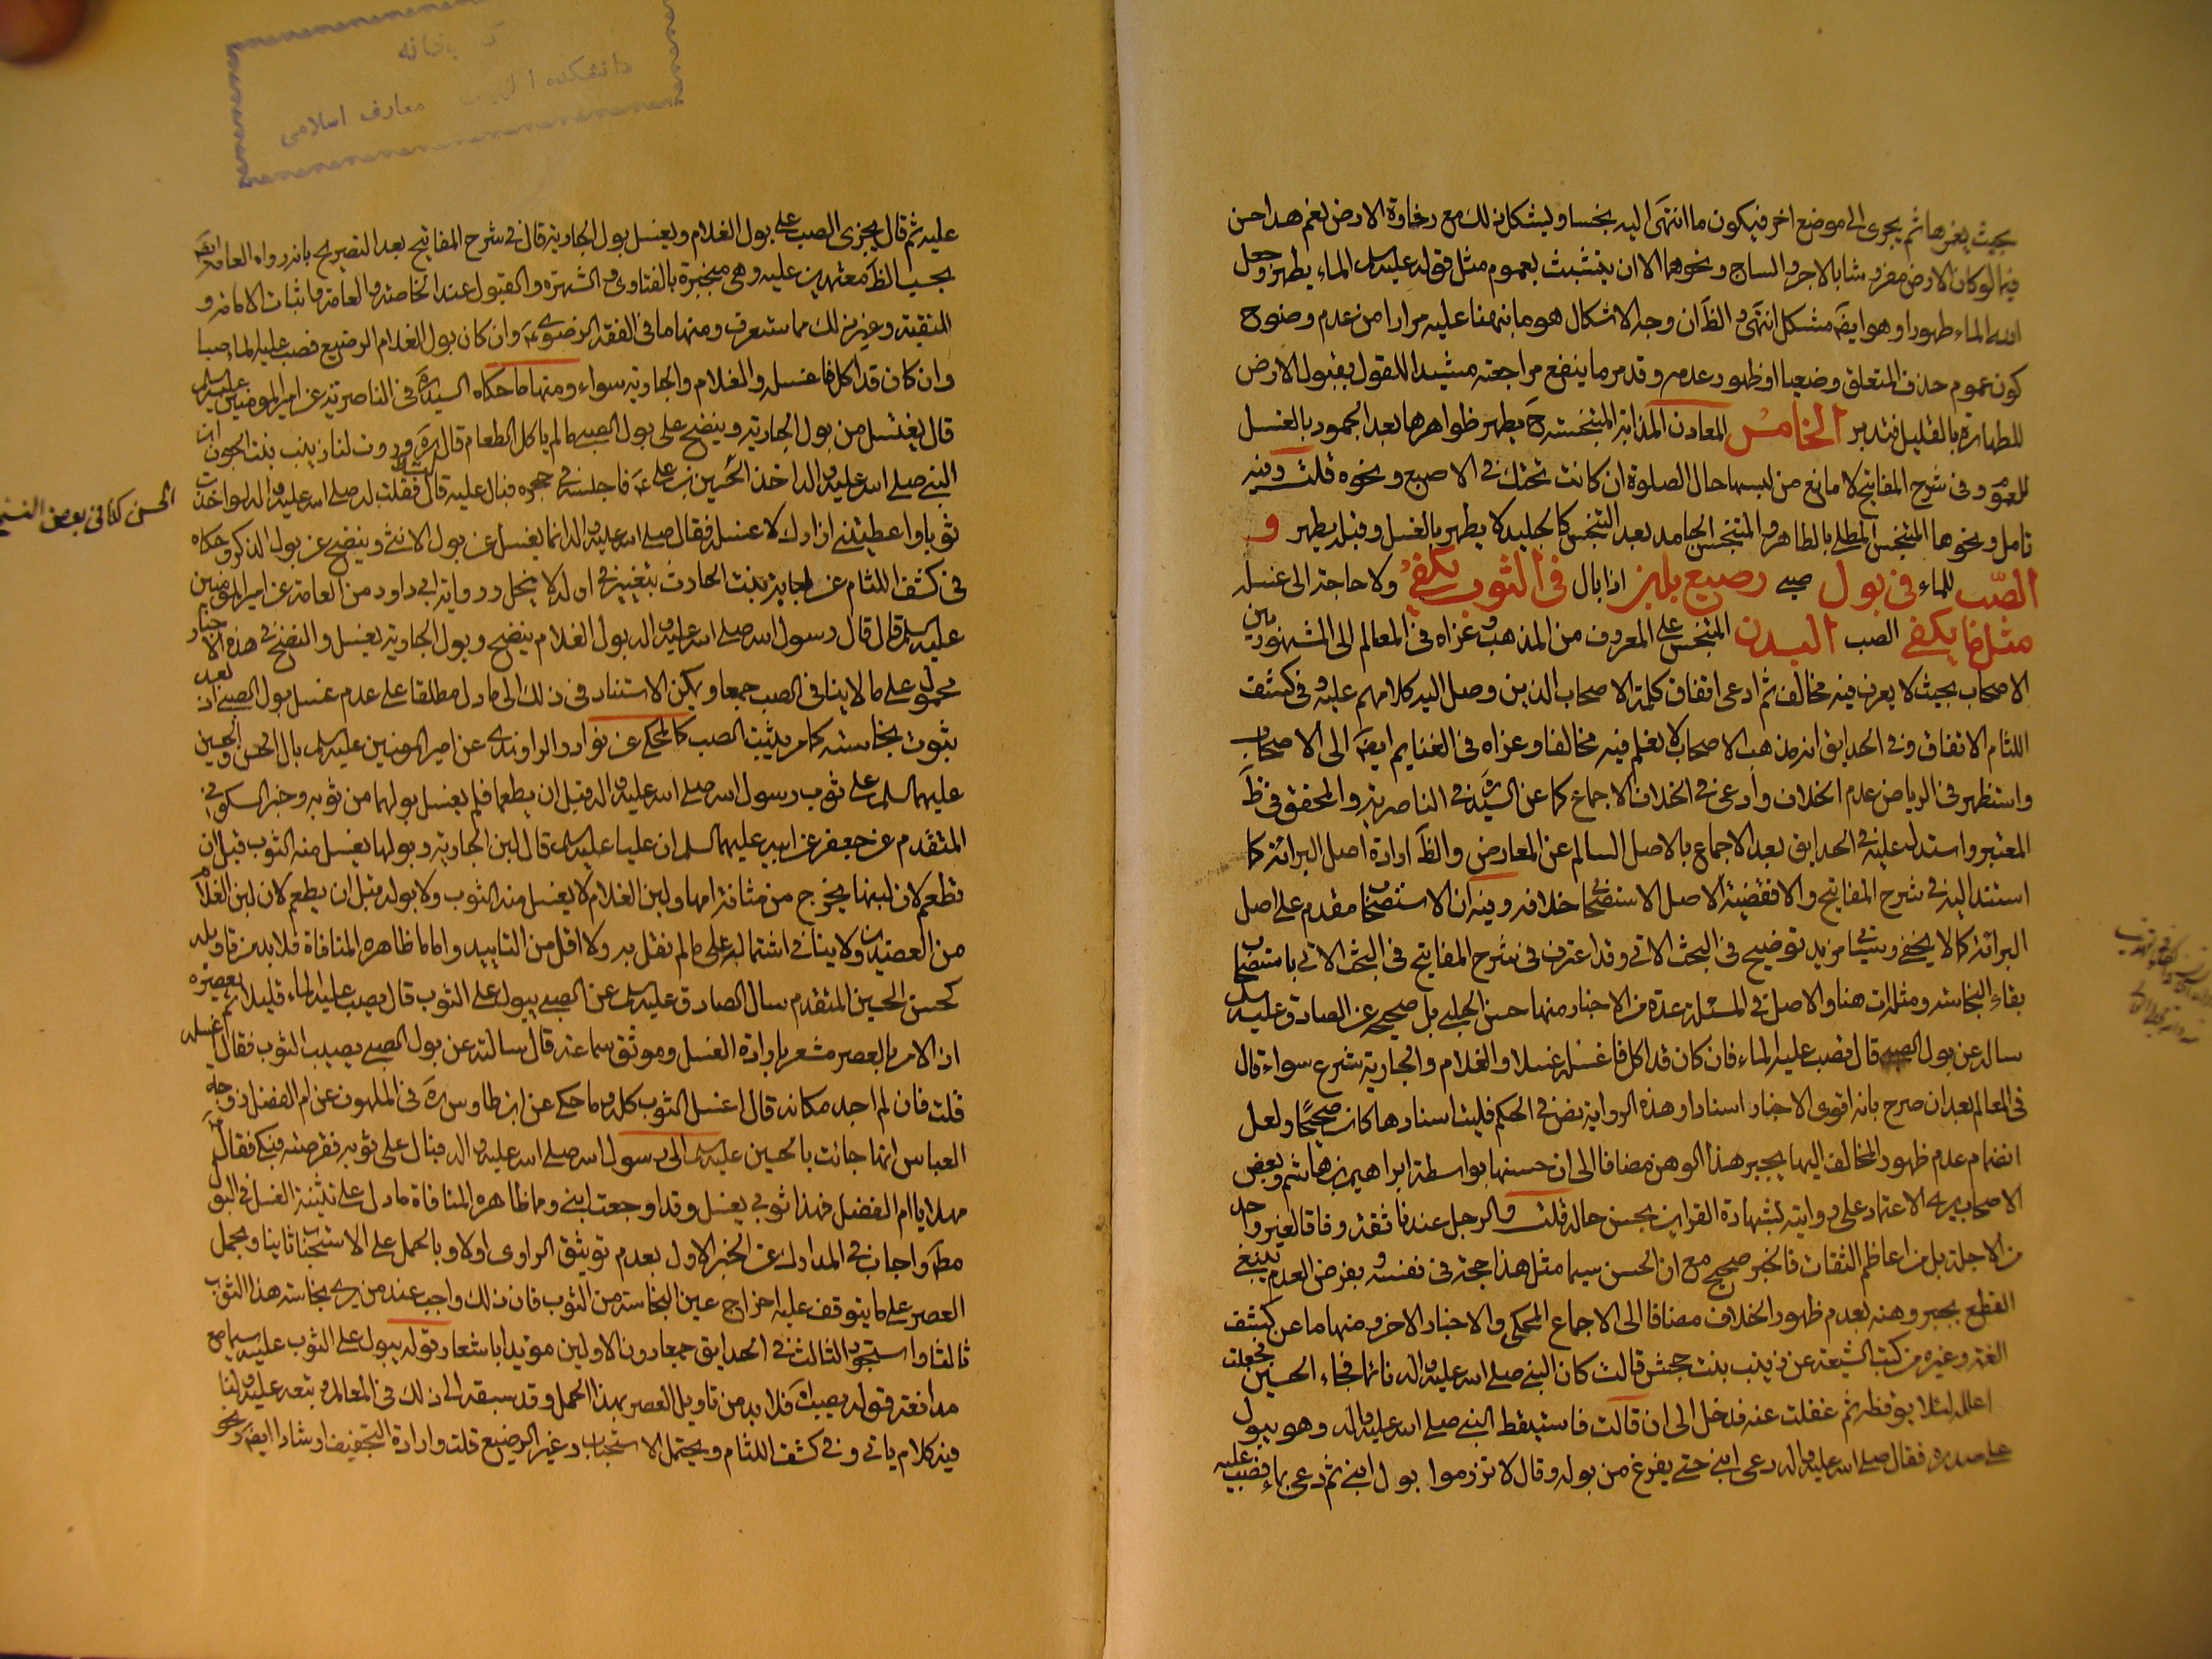 بحيث يغمرها ثم يجرى الى موضع اخر فيكون ما انتهى اليه نجسا ويشكل ذلك مع رخاوة الارض نعم هذا حسن
فيما لو كان الارض مفروشا بالاجر والساج ونحوهما الا ان يتشبث بعموم مثل قوله عليه السلم الماء يطهر وجعل
الله الماء طهورا وهو ايضا مشكل انتهى والظ ان وجه الاشكال هو ما نبهنا عليه مرارا من عدم وضوح
كون عموم حذف المتعلق وضعيا او ظهور عدمه وقد مر ما ينفع مراجعته مشيدا للقول بقبول الارض
للطهارة بالقليل فتدبر الخامس المعادن المذابة المتنجسة ح يطهر ظواهرها بعد الجمود بالغسل
للعموم وفى شرح المفاتيح لا مانع من لبسها حال الصلوة ان كانت تحتك فى الاصبع ونحوه قلت وفيه
تامل ونحوها المتنجس المطلى بالطاهر والمتنجس الجامد بعد التنجس كالجليد لا يطهر بالغسل وقيل يطهر و
الصّب للماء فى بول صبى رضيع بل بز اذا بال فى الثوب يكفى ولا حاجة الى غسله
مثل ما يكفى الصب البدن المتنجس على المعروف من المذهب وعزاه فى المعالم الى المشهور بين
الاصحاب بحيث لا يعرف فيه مخالف ثم ادعى اتفاق كلمة الاصحاب الذين وصل اليه كلامهم عليه وفى كشف
اللثام الاتفاق وفى الحدايق انه مذهب الاصحاب لا نعلم فيه مخالفا وعزاه فى الغنايم ايضا الى الاصحاب
واستظهر فى الرياض عدم الخلاف وادعى فى الخلاف الاجماع كما عن السيد ره فى الناصرية والمحقق فى ظ
المعتبر واستدل عليه فى الحدايق بعد الاجماع بالاصل السالم عن المعارض والظ ارادة اصل البرائة كما
استند اليه فى شرح المفاتيح والا فقضية الاصل الاستصحاب خلافه وفيه ان الاستصحاب مقدم على اصل
البرائة كما لا يخفى وسيتى مزيد توضيح فى البحث الاتى وقد اعترف فى شرح المفاتيح فى البحث الاتى باستصحاب
بقاء النجاسة ومثله ات هنا والاصل فى المسئلة عدة من الاخبار منها حسن الحلبى بل صحيحه عن الصادق عليه السلم
ساله عن بول الصبى قال تصب عليه الماء فان كان قد اكل فاغسله غسلا والغلام والجارية شرع سواء قال
فى المعالم بعد ان صرح بانه اقوى الاخبار اسنادا وهذه الرواية نص فى الحكم فليت اسنادها كان صحيحا ولعل
انضمام عدم ظهور المخالف اليها يجبر هذا الوهن مضافا الى ان حسنها بواسطة ابراهيم بن هاشم وبعض
الاصحاب يرى الاعتماد على روايته لشهادة القراين بحسن حاله قلت والرجل عندنا ثقة وفاقا لغير واحد
من الاجلة بل من اعاظم الثقات فالخبر صحيح مع ان الحسن سيما مثل هذا حجة فى نفسه وبفرض العدم ينبغى
القطع بجبر وهنه بعدم ظهور الخلاف مضافا الى الاجماع المحكى والاخبار الاخر ومنها ما عن كشف
الغمة وغيره من كتب الشيعة عن زينب بنت جحش قالت كان النبى صلى الله عليه واله نائما فجاء الحسين فجعلت
اعلله لئلا يوقظه ثم غفلت عنه فدخل الى ان قالت فاستيقظ النبى صلى الله عليه واله وهو يبول
على صدره فقال صلى الله عليه واله دعى ابنى حتى يفرغ من بوله وقال لا تزرموا بول ابنى ثم دعى بماء فصب عليه
كتابخانه
دانشكده معارف اسلامى
عليه ثم قال يجزى الصب على بول الغلام ويغسل بول الجارية قال فى شرح المفاتيح بعد التصريح بانه رواه العامة ايضا
بحسب الظ معتمدين عليه وهى منجبرة بالفتاوى والشهرة والقبول عند الخاصة والعامة واثبات الامامة و
المنقبة وغير ذلك مما ستعرف ومنها ما فى الفقه الرضوى وان كان بول الغلام الرضيع فصب عليه الماء صبا
وان كان قد اكل فاغسله والغلام والجارية سواء ومنها ما حكاه السيد ره فى الناصرية عن امير المومنين عليه السلم
قال يغتسل من بول الجارية وينضح على بول الصبى ما لم ياكل الطعام قال ره وروت لنا زينب بنت الجون ان
النبى صلى الله عليه واله اخذ الحسين بن على ع فاجلسه فى حجره فبال عليه قال فقلت له صلى الله عليه واله لو اخذت
الحسن كذا فى بعض النسخ
ثوبا واعطيتنى ازارك لاغسله فقال صلى الله عليه واله انما يغسل من بول الانثى وينضح من بول الذكر وحكاه
فى كشف اللثام عن لبابة بنت الحارث بتغيير فى اوله لا يخل ورواية ابى داود من العامة عن امير المومنين
عليه السلم قال قال رسول الله صلى الله عليه واله بول الغلام ينضح وبول الجارية يغسل والنضح فى هذه الاخبار
محمول على ما لا ينافى الصب جمعا ويمكن الاستناد فى ذلك الى ما دل مطلقا على عدم غسل بول الصبى اذ بعد
ثبوت نجاسته كما مر يثبت الصب كالمحكى عن نوادر الراوندى عن امير المومنين عليه السلم بال الحسن والحسين
عليهما السلم على ثوب رسول الله صلى الله عليه واله قبل ان يطعما فلم يغسل بولهما من ثوبه وخبر السكونى
المتقدم عن جعفر عن ابيه عليهما السلم ان عليا عليه السلم قال لبن الجارية وبولها يغسل منه الثوب قبل ان
تطعم لان لبنها يخرج من مثانة امها ولبن الغلام لا يغسل منه الثوب ولا بوله قبل ان يطعم لان لبن الغلام
من العضدين ولا ينافى اشتماله على ما لم نقل به ولا اقل من التاييد واما ما ظاهره المنافاة فلا بد من تاويله
كحسن الحسين المتقدم سال الصادق عليه السلم عن الصبى يبول على الثوب قال يصب عليه الماء قليلا ثم يعصره
اذ الامر بالعصر مشعر بارادة الغسل وموثق سماعة قال سالته عن بول الصبى يصيب الثوب فقال اغسله
قلت فان لم اجد مكانه قال اغسل الثوب كله وما حكى عن ابن طاوس ره فى الملهوف عن ام الفضل زوجة
العباس انها جائت بالحسين عليه السلم الى رسول الله صلى الله عليه واله فبال على ثوبه فقرصته فبكى فقال
مهلا يا ام الفضل فهذا ثوبى يغسل وقد اوجعت ابنى وما ظاهره المنافاة ما دل على تثنية الغسل فى البول
مط واجاب فى المدارك عن الخبر الاول بعدم توثيق الراوى اولا وبالحمل على الاستحباب ثانيا وبحمل
العصر على ما يتوقف عليه اخراج عين النجاسة من الثوب فان ذلك واجب عند من يرى نجاسة هذا الثوب
ثالثا واستجود الثالث فى الحدايق جمعا دون الاولين مويدا باشعار قوله يبول على الثوب عليه سيما مع
مدافعة قوله يصب فلا بد من تاويل العصر بهذا الحمل وقد سبقه الى ذلك فى المعالم وتبعه عليه ولنا
فيه كلام ياتى وفى كشف اللثام ويحتمل الاستحباب وغير الرضيع قلت وارادة التجفيف ارشادا ايضا ونحو